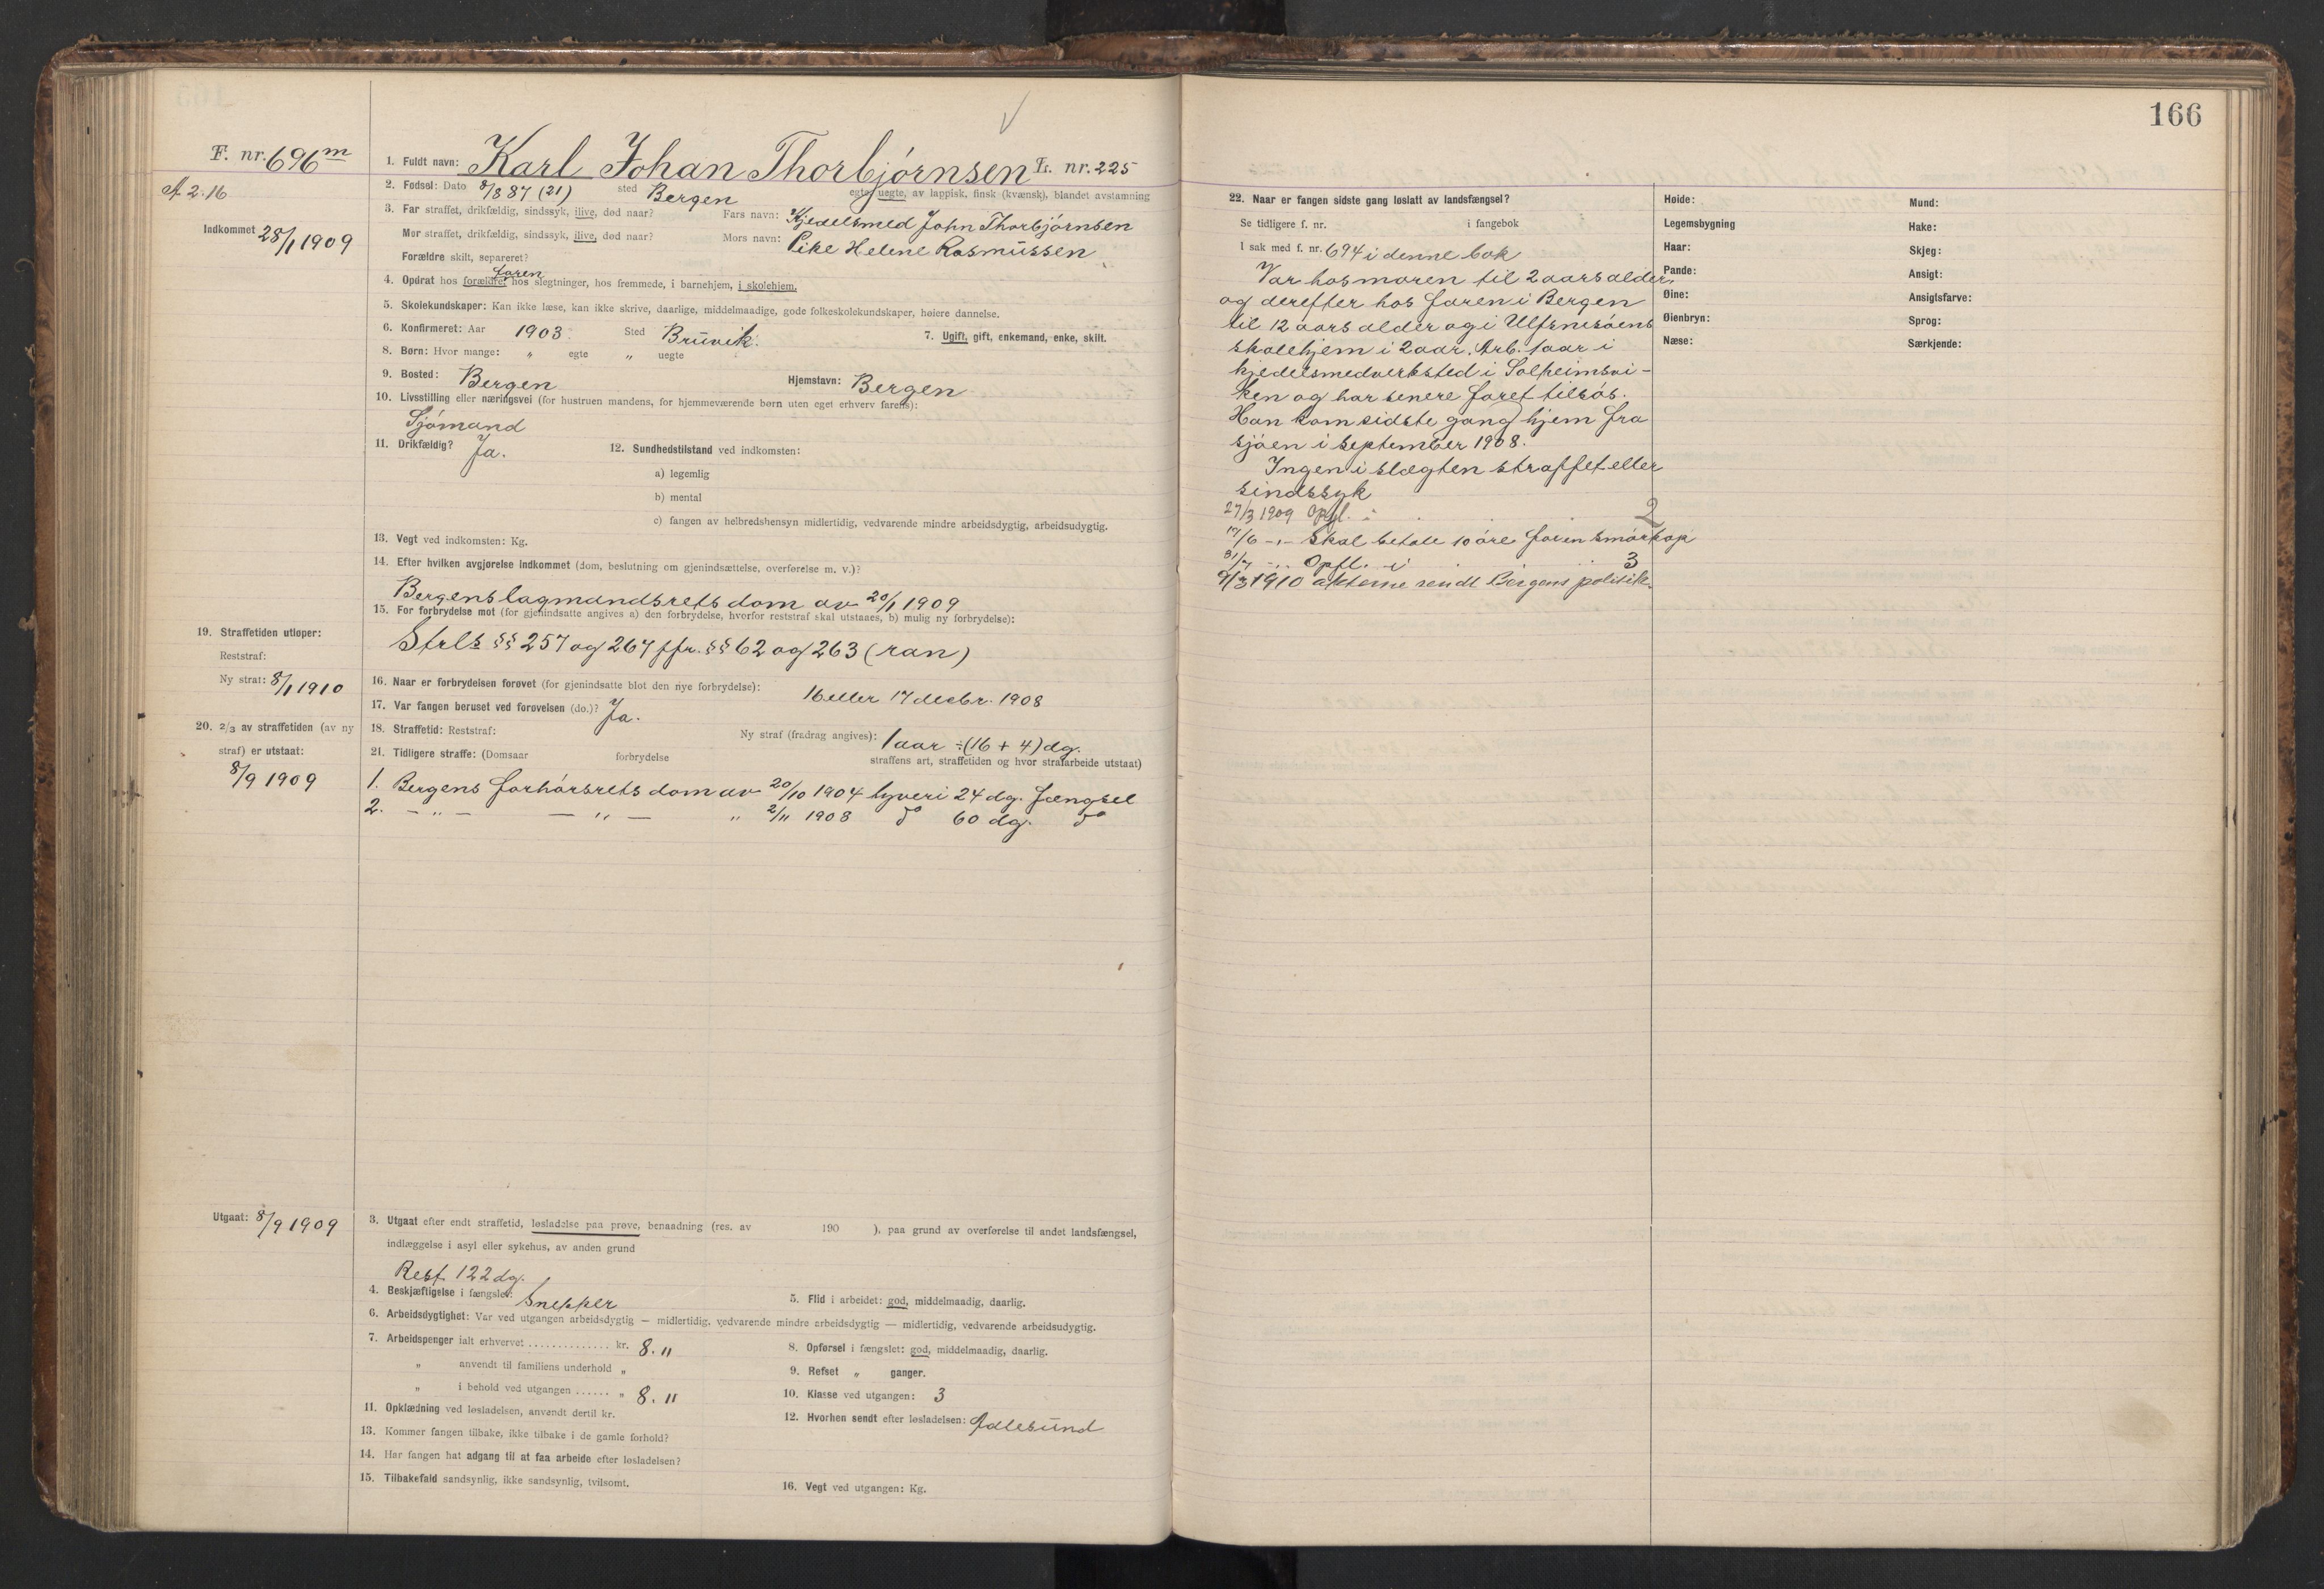 166
F. nr. 696 m
A 2.16
Indkommet 28/1 1909
1. Fuldt navn: Karl Johan Thorbjörnsen L. nr. 225
2. Fødsel: Dato 8/8 87 (21) sted Bergen egte, uegte, av lappisk, finsk (kvænsk), blandet avstamning
3. Far straffet, drikfældig, sindssyk, ilive, død naar? Fars navn: Kjedelsmed John Thorbjörnsen
Mor straffet, drikfældig, sindssyk, ilive, død naar? Mors navn: Pike Helene Rasmussen
Forældre skilt, separeret?
faren
4. Opdrat hos forældre, hos slegtninger, hos fremmede, i barnehjem, i skolehjem.
5. Skolekundskaper: Kan ikke læse, kan ikke skrive, daarlige, middelmaadige, gode folkeskolekundskaper, høiere dannelse.
6. Konfirmeret: Aar 1903 Sted Bruvik. 7. Ugift, gift, enkemand, enke, skilt.
8. Børn: Hvor mange: " egte " uegte
9. Bosted: Bergen Hjemstavn: Bergen
10. Livsstilling eller næringsvei (for hustruen mandens, for hjemmeværende børn uten eget erhverv farens):
Sjömand
11. Drikfældig? Ja. 12. Sundhedstilstand ved indkomsten:
a) legemlig
b) mental
c) fangen av helbredshensyn midlertidig, vedvarende mindre arbeidsdygtig, arbeidsudygtig.
13. Vegt ved indkomsten: Kg.
14. Efter hvilken avgjørelse indkommet (dom, beslutning om gjenindsættelse, overførelse m. v.)?
Bergens lagmandsrets dom av 20/1 1909
15. For forbrydelse mot (for gjenindsatte angives a) den forbrydelse, hvorfor reststraf skal utstaaes, b) mulig ny forbrydelse):
Strls §§ 257 og 267 jfr. §§ 62 og 263 (ran)
19. Straffetiden utløper:
Reststraf:
Ny straf: 8/1 1910
16. Naar er forbrydelsen forøvet (for gjenindsatte blot den nye forbrydelse): 16 eller 17 decbr. 1908
17. Var fangen beruset ved forøvelsen (do.)? Ja.
20. 2/3 av straffetiden (av ny
straf) er utstaat:
8/9 1909
18. Straffetid: Reststraf: Ny straf (fradrag angives): 1 aar ÷ (16 + 4) dg.
21. Tidligere straffe: (Domsaar forbrydelse straffens art, straffetiden og hvor strafarbeide utstaat)
1. Bergens forhörsrets dom av 20/10 1904 tyveri 24 dg. fængsel
2. — " — — " — " 2/11 1908 do 60 dg. do
Utgaat: 8/9 1909
3. Utgaat efter endt straffetid, løsladelse paa prøve, benaadning (res. av 190 ), paa grund av overførelse til andet landsfængsel,
indlæggelse i asyl eller sykehus, av anden grund
Rest 122 dg.
4. Beskjæftigelse i fængslet: Snekker 5. Flid i arbeidet: god, middelmaadig, daarlig.
6. Arbeidsdygtighet: Var ved utgangen arbeidsdygtig — midlertidig, vedvarende mindre arbeidsdygtig — midlertidig, vedvarende arbeidsudygtig.
7. Arbeidspenger ialt erhvervet .............. kr. 8. 11 8. Opførsel i fængslet: god, middelmaadig, daarlig.
" anvendt til familiens underhold " 9. Refset " ganger.
" i behold ved utgangen ...... " 8. 11 10. Klasse ved utgangen: 3
11. Opklædning ved løsladelsen, anvendt dertil kr. 12. Hvorhen sendt efter løsladelsen: Aalesund
13. Kommer fangen tilbake, ikke tilbake i de gamle forhold?
14. Har fangen hat adgang til at faa arbeide efter løsladelsen?
15. Tilbakefald sandsynlig, ikke sandsynlig, tvilsomt. 16. Vegt ved utgangen: Kg.
22. Naar er fangen sidste gang løslatt av landsfængsel?
Se tidligere f. nr. i fangebok
I sak med f. nr. 694 i denne bok
Var hos moren til 2 aars alder
og derefter hos faren i Bergen
til 12 aars alder og i Ulfsnesöens
skolehjem i 2 aar. Arb. 1 aar i
kjedelsmedverksted i Solheimsvi-
ken og har senere faret tilsös.
Han kom sidste gang hjem fra
sjöen i september 1908.
Ingen i slægten straffet eller
sindssyk
27/3 1909 Opfl. i 2
19/6 -"- Skal betale 10 öre for en smörkop
31/7 -"- Opfl. i 3
9/3 1910 akterne sendt Bergens politik.
Høide: Mund:
Legemsbygning Hake:
Haar: Skjeg:
Pande: Ansigt:
Øine: Ansigtsfarve:
Øienbryn: Sprog:
Næse: Særkjende: